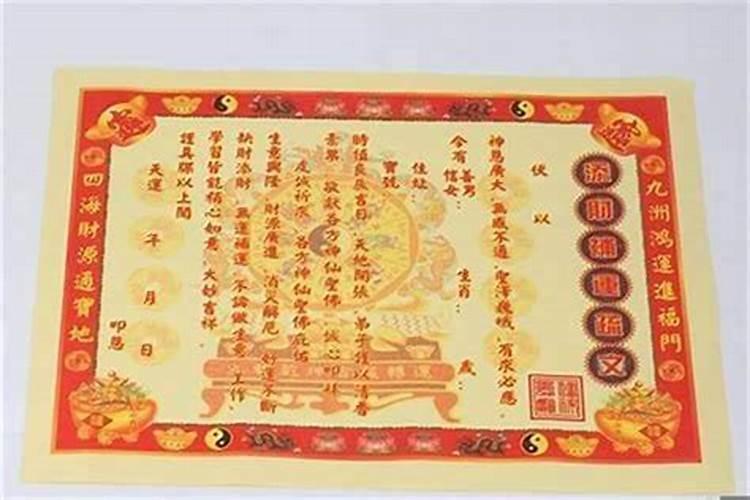 九洲鴻運進福門
添財補運疏文
伏以
神恩廣大 無感不通 聖澤巍峨 有求必應
今有 善男 信女 生肖 歲
住址
寶號
時值良辰吉日 天地開張 弟子僅以清香
素果 敬獻各方神仙聖佛 誠心叩拜
虔誠祈求 各方神仙聖佛庇佑
生意興隆 財源廣進 消災解厄 好運不斷
缺財添財 無運補運 不論做生意 工作
學習皆能稱心如意 大妙吉祥
謹具疏以上聞
天運 年 月 日 叩懇
四海財源通寶地